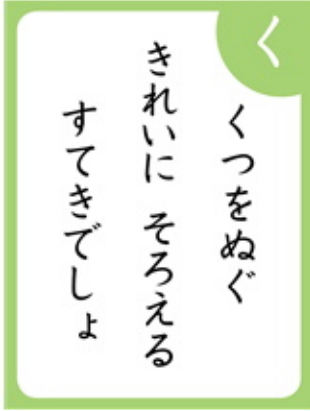 く
くつをぬぐ
きれいに そろえる
すてきでしょ